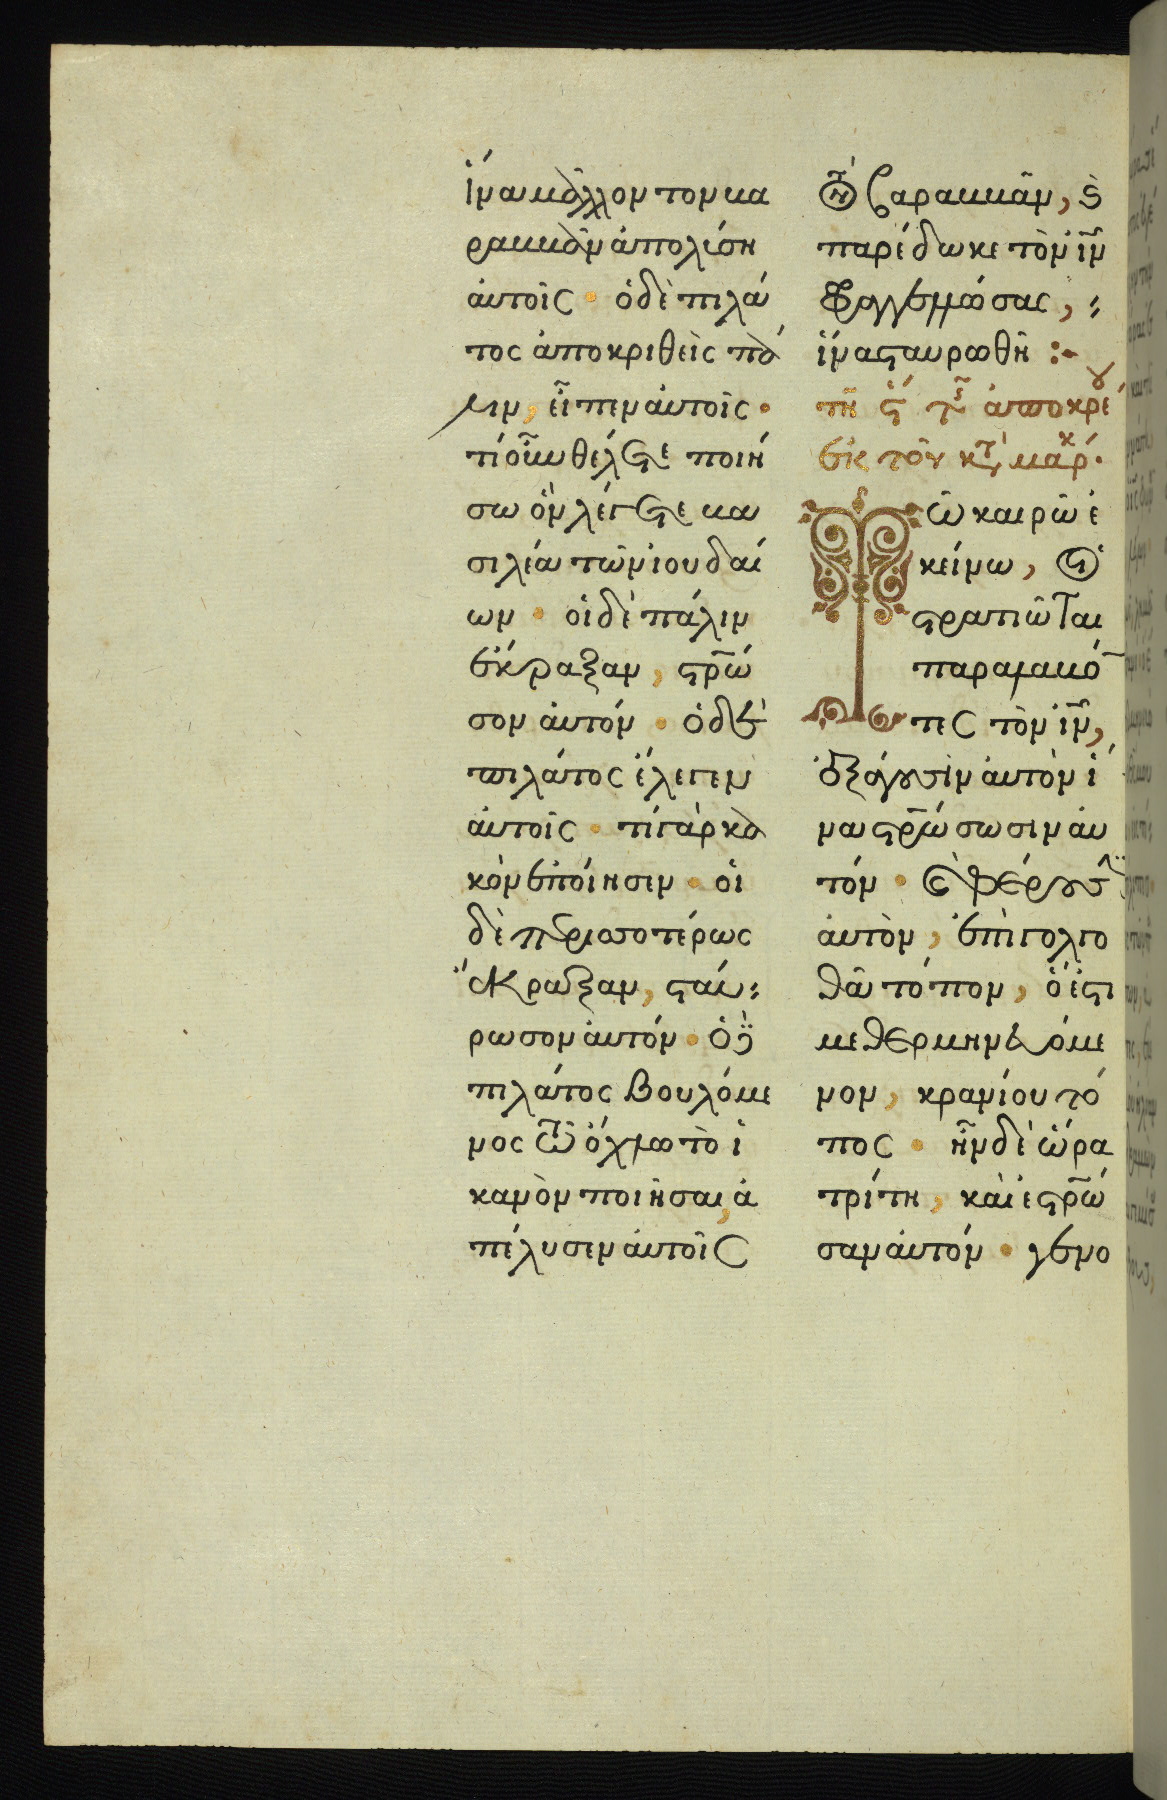 ἵνα μᾶλλον τὸν βα
ραββᾶν ἀπολύσῃ
αὐτοῖς· ὁ δὲ πιλά
τος ἀποκριθεὶς πά
λιν, εἶπεν αὐτοῖς·
τί οὖν θέλετε ποιή
σω ὃν λέγετε βα
σιλέα τῶν ἰουδαί
ων· οἱ δὲ πάλιν
ἔκραξαν, στρώ
σον αὐτόν· ὁ δὲ
πιλάτος ἔλεγεν
αὐτοῖς· τί γὰρ κα
κὸν ἐποίησεν· οἱ
δὲ περισσοτέρως
ἔκραξαν, σταύ
ρωσον αὐτόν· ὁ δὲ
πιλάτος βουλόμε
νος τῷ ὄχλῳ τὸ ἱ
κανὸν ποιῆσαι, ἀ
πέλυσεν αὐτοῖς
τὸν βαραββᾶν, καὶ
παρέδωκε τὸν ἰν
φραγγελλώσας,
ἵνα σταυρωθῇ :
τῇ ϛ τῆς ἀποκρέου
ἐκ τοῦ κτ μάρκ.
Τῷ καιρῷ ἐ
κείνω, οἱ
στρατιῶται
παραλαβό
τες τὸν ἰν,
ἐξάγουσιν αὐτὸν ἵ
να στρώσωσιν αὐ
τόν· καὶ φέρουσιν
αὐτὸν, ἐπὶ γολγο
θᾶ τόπον, ὅ ἐστι
μεθερμηνευόμε
νον, κρανίου τό
πος· ἦν δὲ ὥρα
τρίτη, καὶ ἐστρώ
σαν αὐτόν· γενο